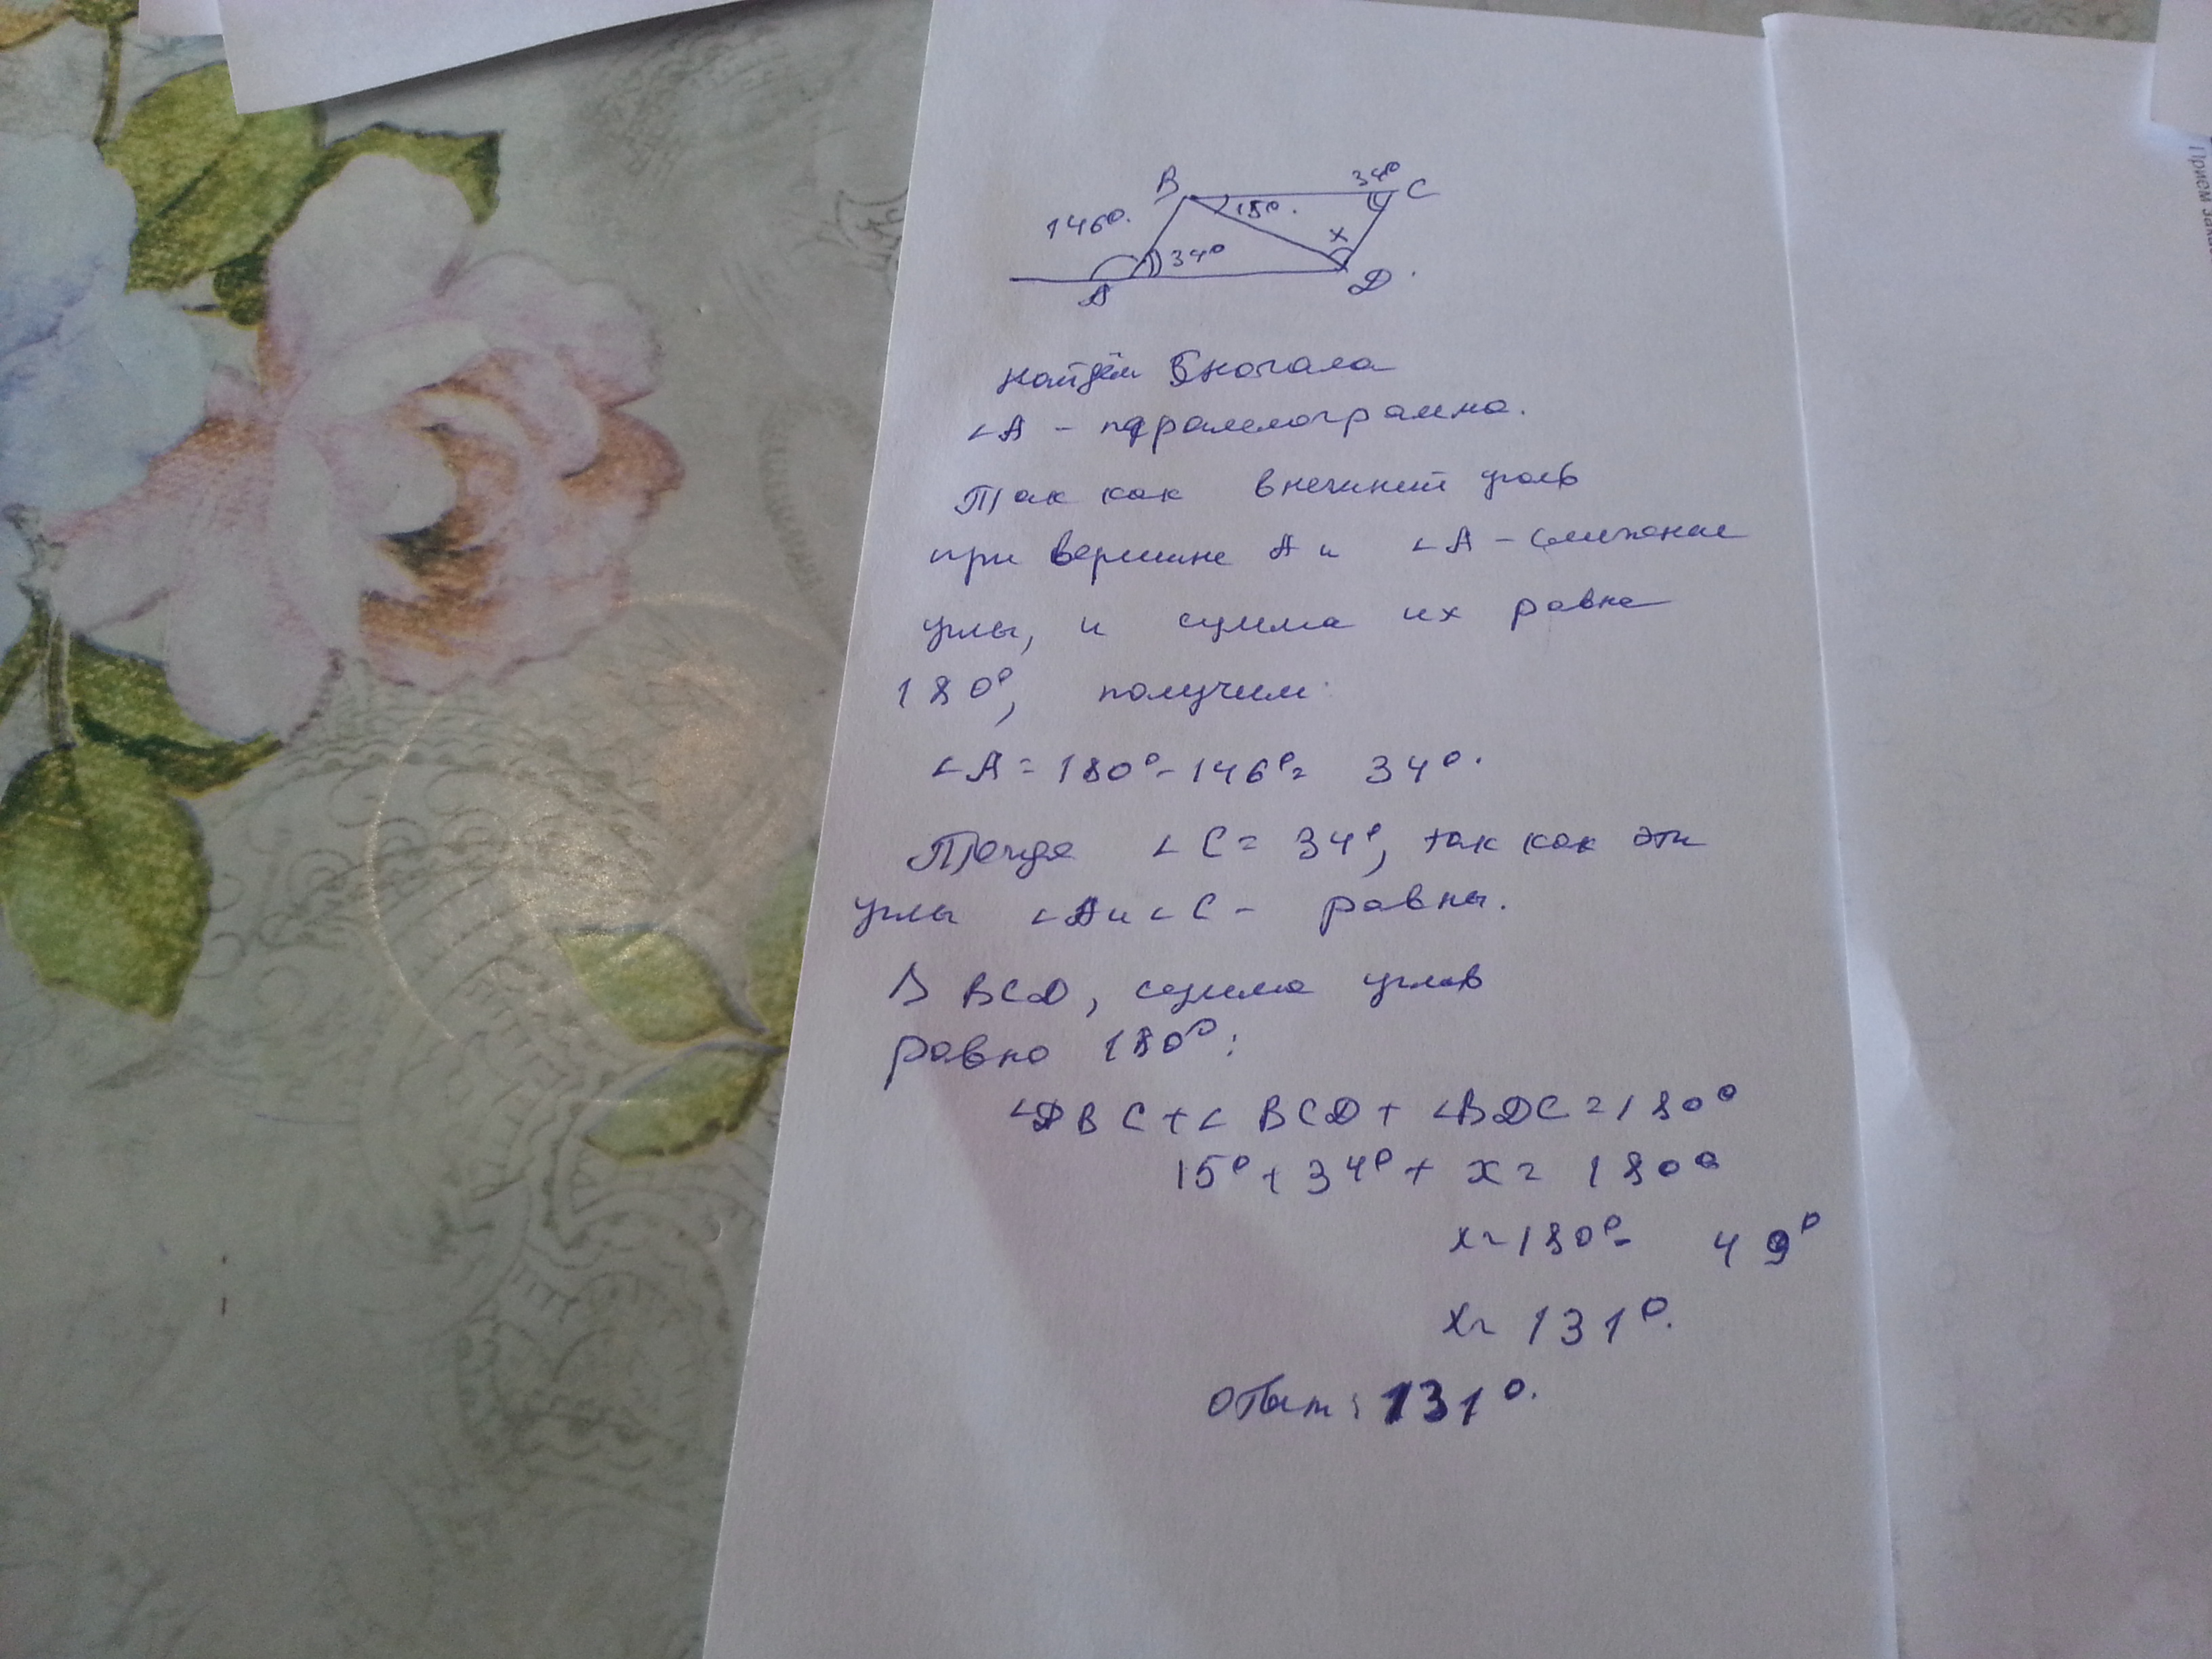 B
34°
C
146°.
15°.
x
34°
A
D
Найдём сначала
∠A - параллелограмма.
Так как внешний угол
при вершине A и ∠A - смежные
углы, и сумма их равна
180°, получим:
∠A = 180° - 146° = 34°.
Тогда ∠C = 34°, так как эти
углы ∠A и ∠C - равны.
В BCD, сумма углов
равна 180°:
∠DBC + ∠BCD + ∠BDC = 180°
15° + 34° + x = 180°
x = 180° - 49°
x = 131°.
Ответ: 131°.